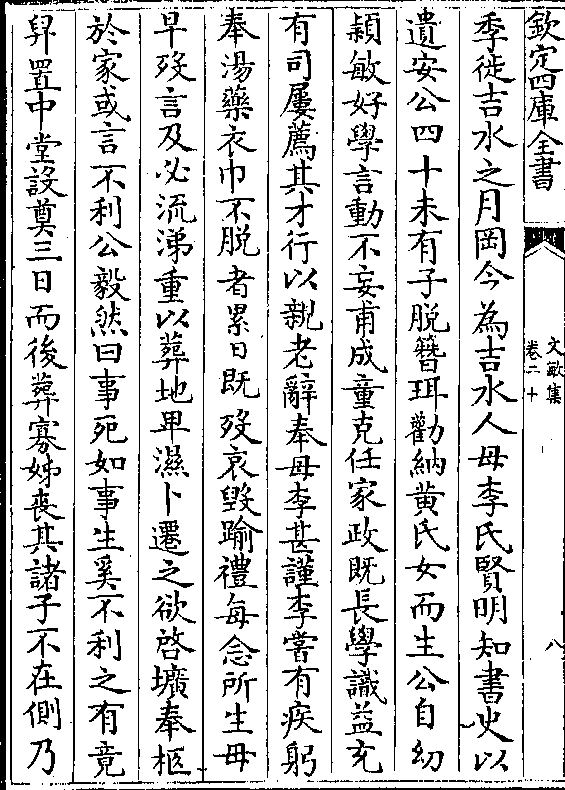 欽定四庫全書
文敏集
卷二十
八
季徙吉水之月岡今為吉水人母李氏賢明知書史以
遺安公四十未有子脱簪珥勸納黄氏女而生公自幼
穎敏好學言動不妄甫成童克任家政既長學識益充
有司屢薦其才行以親老辭奉母李甚謹李嘗有疾躬
奉湯藥衣巾不脱者累日既歿哀毁踰禮每念所生母
早歿言及必流涕重以葬地卑濕卜遷之欲啓壙奉柩
於家或言不利公毅然曰事死如事生奚不利之有竟
舁置中堂設奠三日而後葬寡姊喪其諸子不在側乃